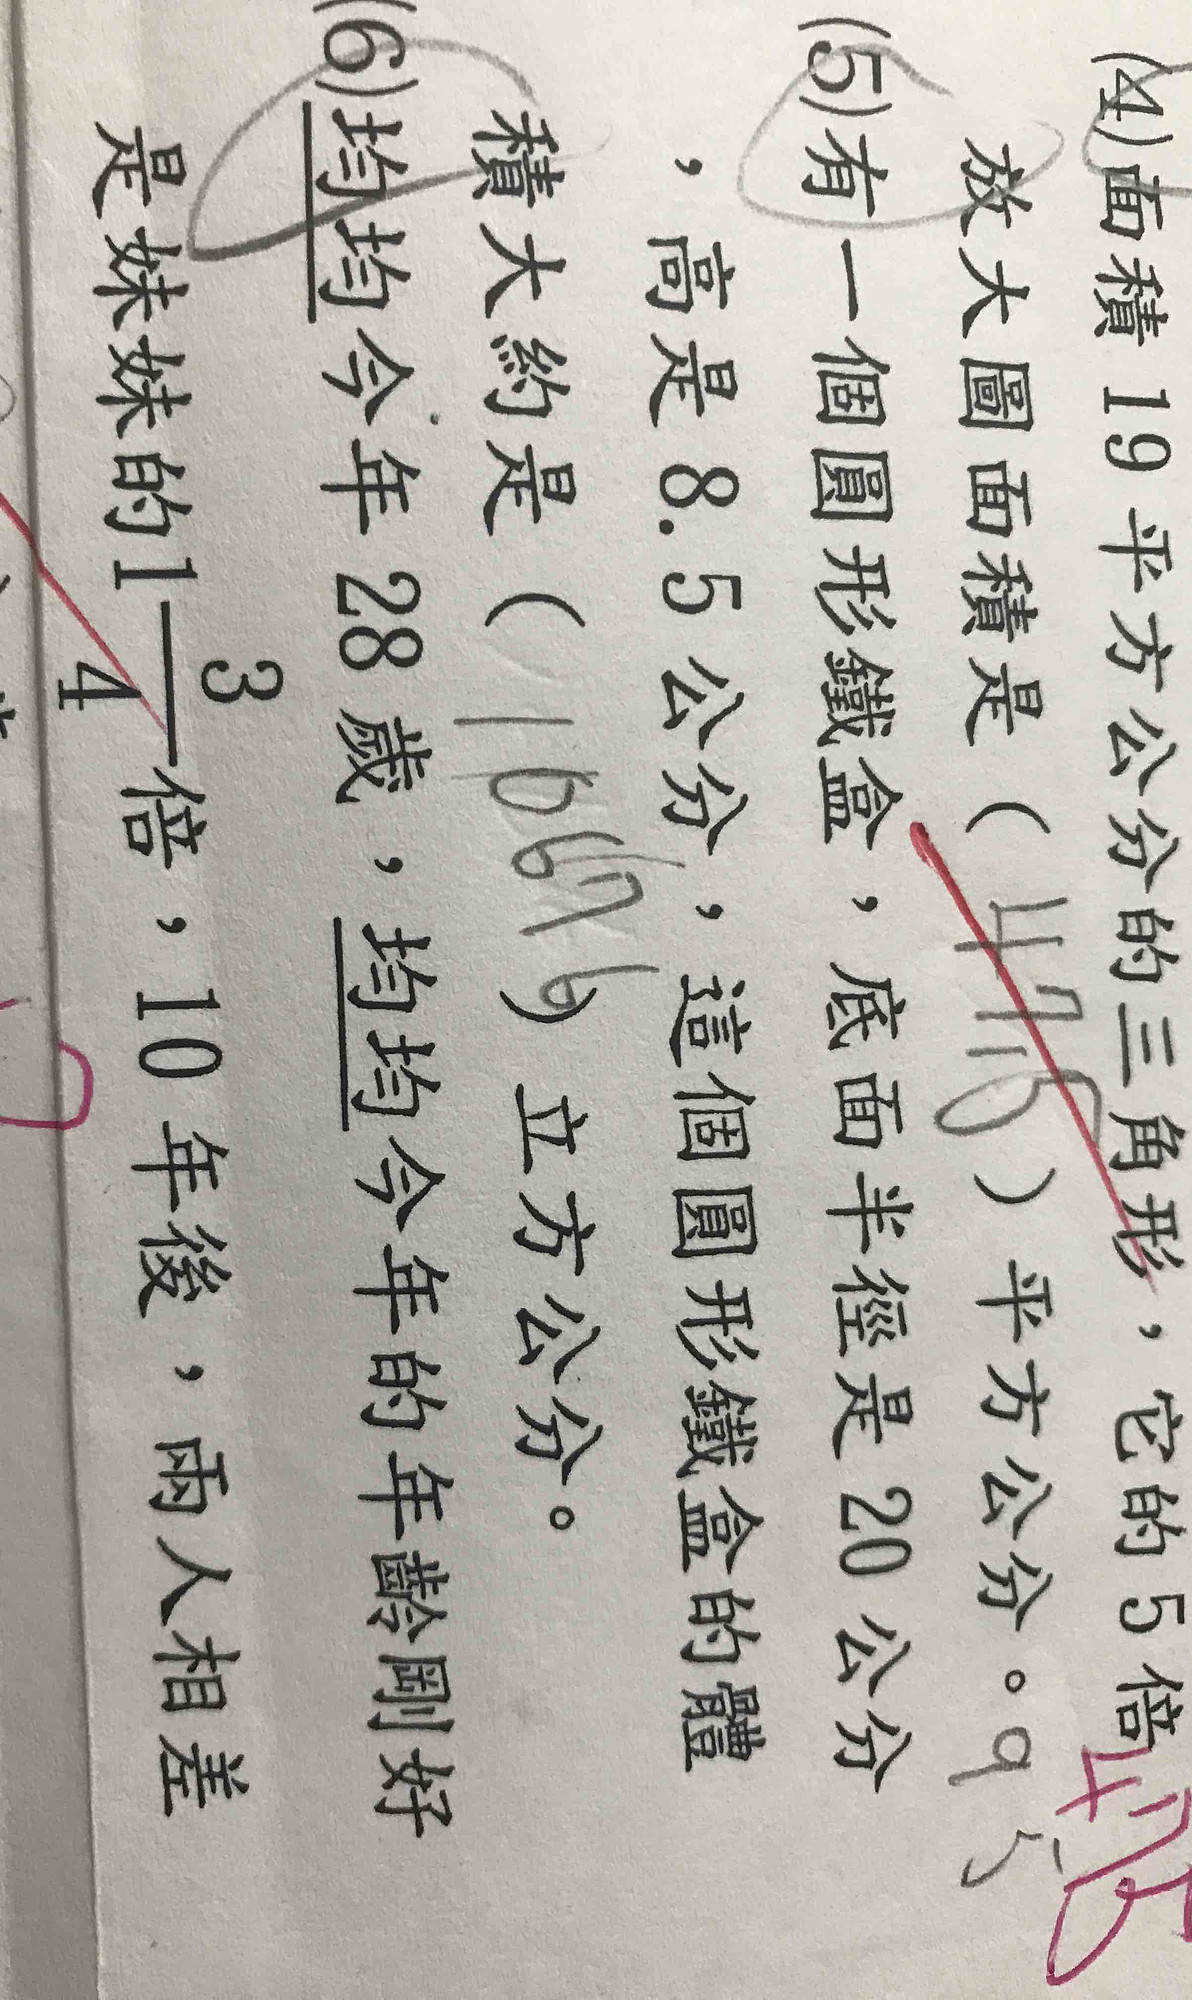 (4)面積 19 平方公分的三角形，它的 5 倍
放大圖面積是（ 475 ）平方公分。95
475
(5)有一個圓形鐵盒，底面半徑是 20 公分
，高是 8.5 公分，這個圓形鐵盒的體
積大約是（ ）立方公分。
(6)均均今年 28 歲，均均今年的年齡剛好
是妹妹的1 3/4 倍，10 年後，兩人相差